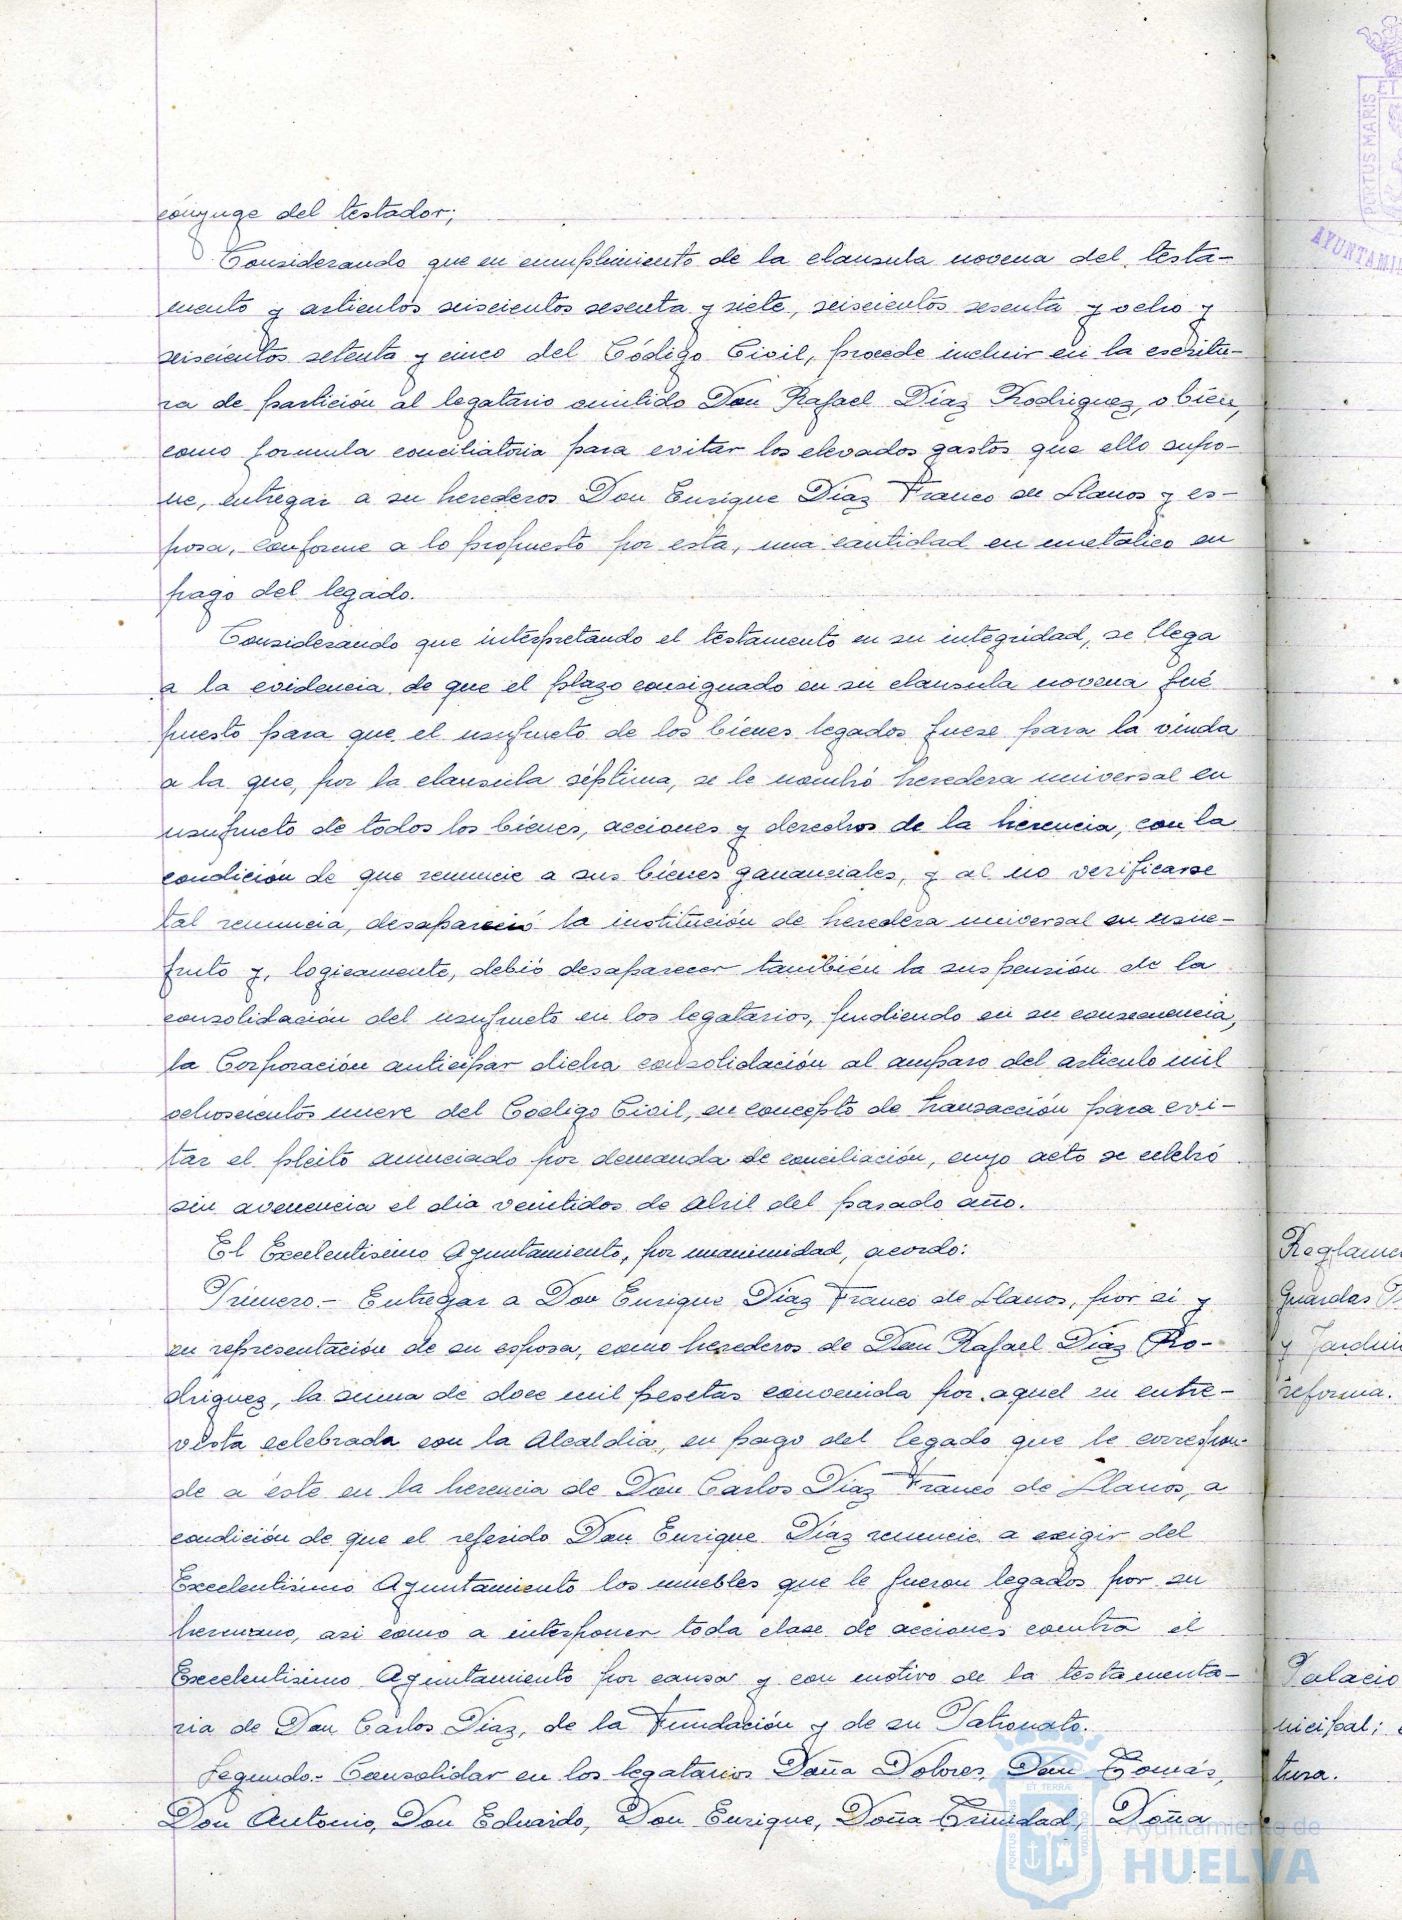 cónyuge del testador;
Considerando que en cumplimiento de la clausula novena del testa-
mento y articulos seiscientos sesenta y siete, seiscientos sesenta y ocho y
seiscientos setenta y cinco del Código Civil, procede incluir en la escritu-
ra de partición al legatario omitido Don Rafael Díaz Rodriguez, o bién,
como formula conciliatoria para evitar los elevados gastos que ello supo-
ne, entregar a su herederos Don Enrique Díaz Franco de Llanos y es-
posa, conforme a lo propuesto por esta, una cantidad en metalico en
pago del legado.
Considerando que interpretando el testamento en su integridad, se llega
a la evidencia de que el plazo consignado en su clausula novena fué
puesto para que el usufructo de los bienes legados fuese para la viuda
a la que, por la clausula séptima, se le nombró heredera universal en
usufructo de todos los bienes, acciones y derechos de la herencia, con la
condición de que renuncie a sus bienes gananciales, y al no verificarse
tal renuncia, desapareció la institución de heredera universal en usu-
fruto y, logicamente, debió desaparecer también la suspensión de la
consolidación del usufructo en los legatarios, pudiendo en su consecuencia,
la Corporación anticipar dicha consolidación al amparo del articulo mil
ochoscientos nueve del Codigo Civil, en concepto de transacción para evi-
tar el pleito anunciado por demanda de conciliación, cuyo acto se celebró
sin avenencia el dia veintidos de Abril del pasado año.
El Excelentisimo Ayuntamiento, por unanimidad, acordó:
Primero.- Entregar a Don Enrique Díaz Franco de Llanos, por si y
en representación de su esposa, como herederos de Don Rafael Díaz Ro-
driguez, la suma de doce mil pesetas convenida por aquel en entre-
vista celebrada con la Alcaldia, en pago del legado que le correspon-
de a éste en la herencia de Don Carlos Díaz Franco de Llanos, a
condición de que el referido Don Enrique Díaz renuncie a exigir del
Excelentisimo Ayuntamiento los muebles que le fueron legados por su
hermano, asi como a interponer toda clase de acciones contra el
Excelentisimo Ayuntamiento por causa y con motivo de la testamenta-
ria de Don Carlos Díaz, de la Fundación y de su Patronato.
Segundo.- Consolidar en los legatarios Doña Dolores, Don Tomás,
Don Antonio, Don Eduardo, Don Enrique, Doña Trinidad, Doña
Reglame
Guardas P
y Jardin
reforma.
Palacio
nicipal;
tura.
PORTUS MARIS
ET
AYUNTAMI
PORTUS MARIS
ET TERRÆ
CUSTODIA
Ayuntamiento de
HUELVA